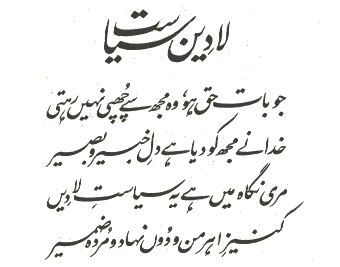 لا دین سیاست
جو بات حق ہو، وہ مجھ سے چُھپی نہیں رہتی
خدا نے مجھ کو دیا ہے دلِ خبیر و بصیر
مری نگاہ میں ہے یہ سیاستِ لا دیں
کنیزِ اہرمن و دُوں نہاد و مُردہ ضمیر